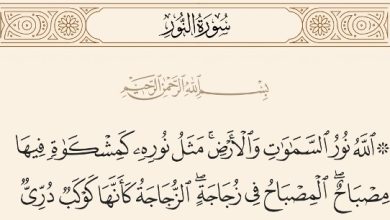 سُورَةُ النُّورِ
بِسْمِ اللَّهِ الرَّحْمَٰنِ الرَّحِيمِ
۞ ٱللَّهُ نُورُ ٱلسَّمَٰوَٰتِ وَٱلْأَرْضِۚ مَثَلُ نُورِهِۦ كَمِشْكَوٰةٖ فِيهَا
مِصْبَاحٌۖ ٱلْمِصْبَاحُ فِي زُجَاجَةٍۖ ٱلزُّجَاجَةُ كَأَنَّهَا كَوْكَبٞ دُرِّيّٞ